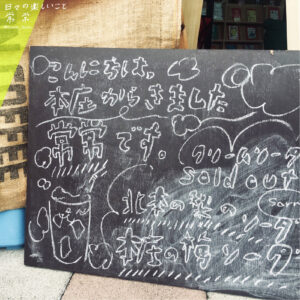 日々の楽しいこと
常常
こんにちは。
本庄からきました
常常です。
クリームソーダ
Sold out
北本の梨の
Sorr
ソーダ
本庄の梅ソーダ